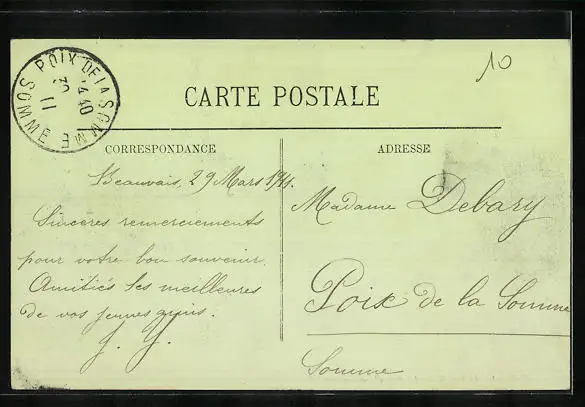 10
POIX DE LA SOMME
SOMME
CARTE POSTALE
CORRESPONDANCE
ADRESSE
Beauvais, 29 Mars 1911.
Sincères remerciements
pour votre bon souvenir.
Amitiés les meilleures
de vos jeunes amis.
J. J.
Madame Debary
Poix de la Somme
Somme